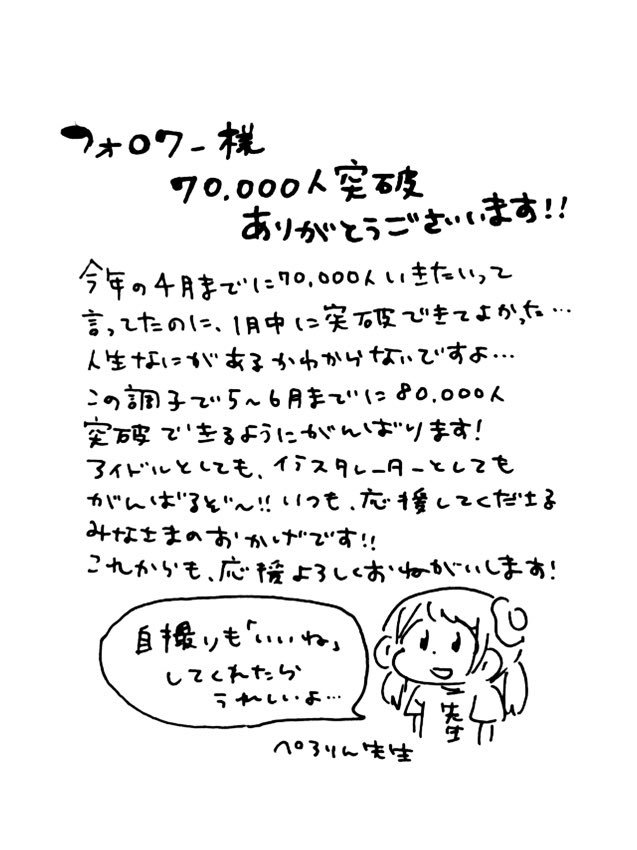 フォロワー様
70.000人突破
ありがとうございます!!
今年の4月までに70,000人いきたいって
言ってたのに、1月中に突破できてよかった…
人生なにがあるかわからないですよ…
この調子で5~6月までに80.000人
突破できるようにがんばります!
アイドルとしても、イラスタレーターとしても
がんばるぞ~!! いつも、応援してくださる
みなさまのおかげです!!
これからも、応援よろしくおねがいします!
自撮りも「いいね」
してくれたら
うれしいよ…
先生
ぺろりん先生